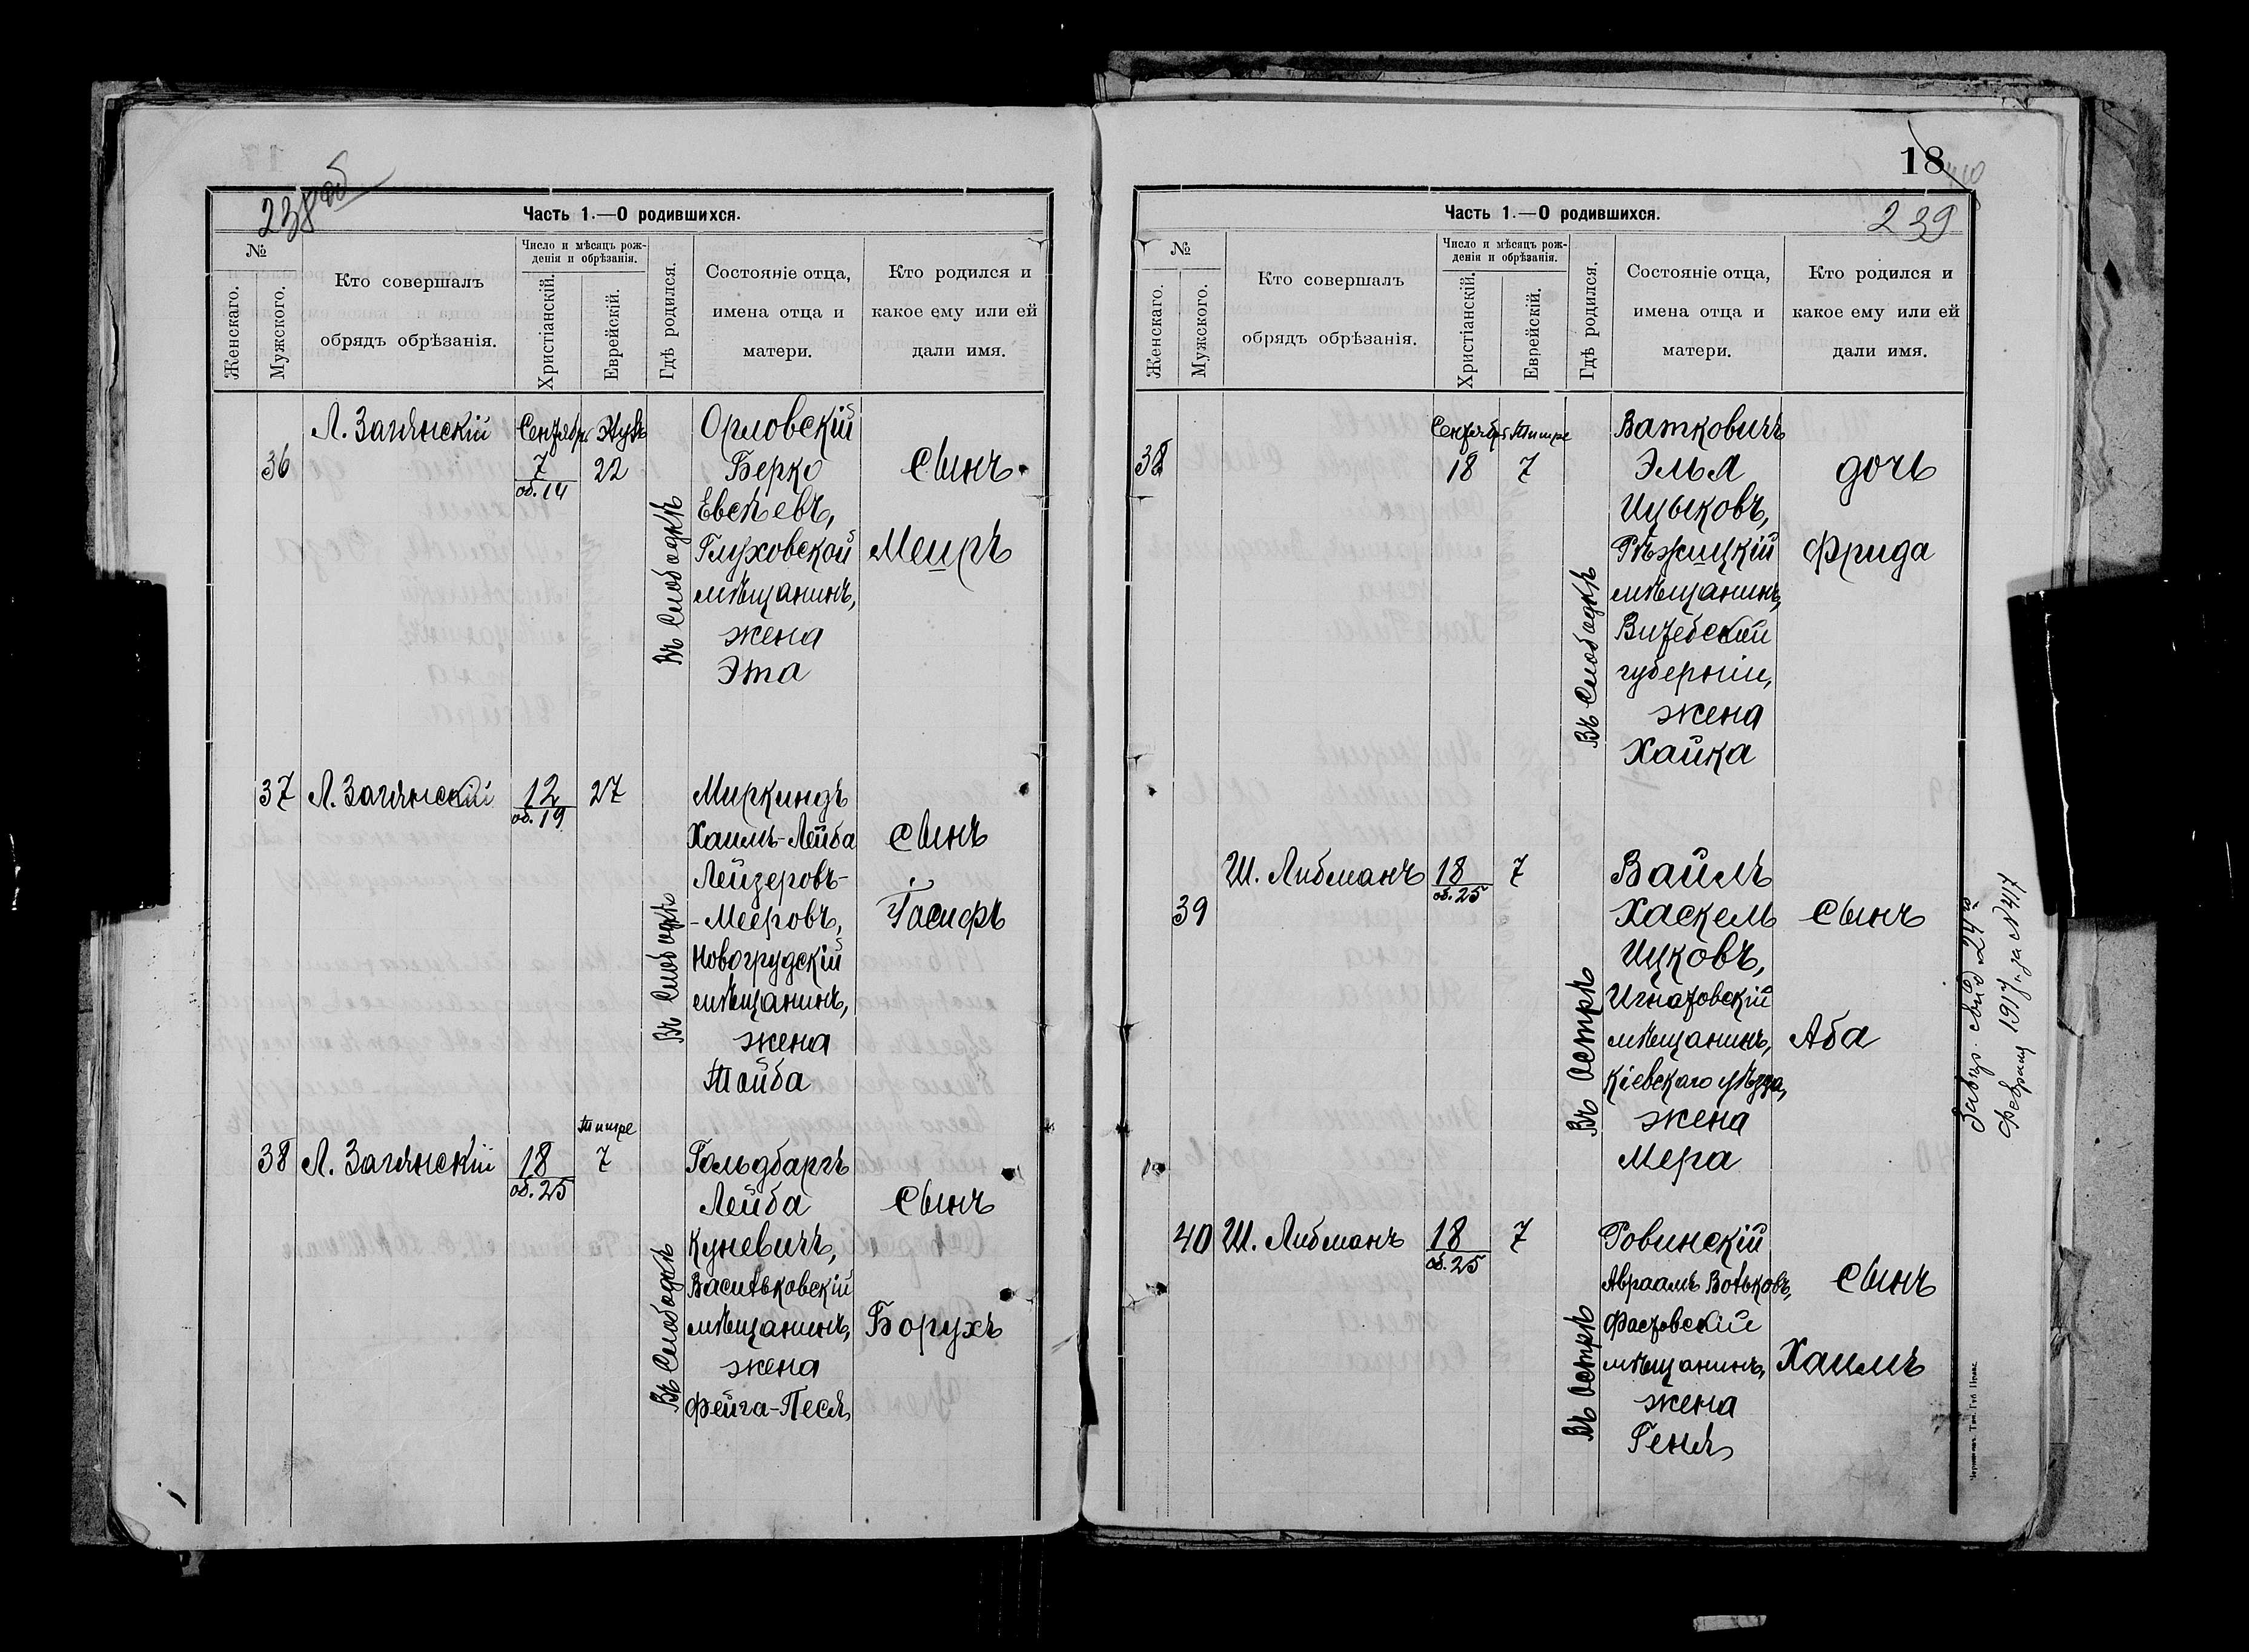 238 об
Часть 1.—О родившихся.
№
Женскаго.
Мужского.
Кто совершалъ
обрядъ обрѣзанія.
Число и мѣсяцъ рож-
денія и обрѣзанія.
Христіанскій.
Еврейскій.
Гдѣ родился.
Состояніе отца,
имена отца и
матери.
Кто родился и
какое ему или ей
дали имя.
36
Л. Загянскій
Сентябрь
7
об. 14
Элуль
22
Въ Слободкѣ
Орловскій
Берко
Евсѣевъ,
Глуховской
мѣщанинъ,
жена
Эта
Сынъ
Меиръ
37
Л. Загянскій
12
об. 19
27
Въ Слободкѣ
Миркиндъ
Хаимъ-Лейба
Лейзеровъ-
-Мееровъ,
Новогрудскій
мѣщанинъ,
жена
Тайба
Сынъ
38
Л. Загянскій
18
об. 25
Тишре
7
Въ Слободкѣ
Гольдбаргъ
Лейба
Куневичъ,
Васильковскій
мѣщанинъ,
жена
Фейга-Песя
Сынъ
Борухъ
18
239
Часть 1.—О родившихся.
№
Женскаго.
Мужского.
Кто совершалъ
обрядъ обрѣзанія.
Число и мѣсяцъ рож-
денія и обрѣзанія.
Христіанскій.
Еврейскій.
Гдѣ родился.
Состояніе отца,
имена отца и
матери.
Кто родился и
какое ему или ей
дали имя.
38
Сентябрь
18
Тишре
7
Въ Слободкѣ
Ваткович
Элья
Ицыковъ,
Рѣжицкій
мѣщанинъ,
Витебской
губерніи,
жена
Хайка
дочь
Фрида
39
Ш. Либманъ
18
об. 25
7
Въ Острѣ
Вайль
Хаскель
Ицковъ,
Игнатовскій
мѣщанинъ,
Кіевского уѣзда,
жена
Мера
Сынъ
Аба
40
Ш. Либманъ
18
об. 25
7
Въ Острѣ
Ровинскій
Авраамъ Вольковъ,
Фастовскій
мѣщанинъ,
жена
Геня
Сынъ
Хаимъ
24го
февраля 1917 г. за № 417